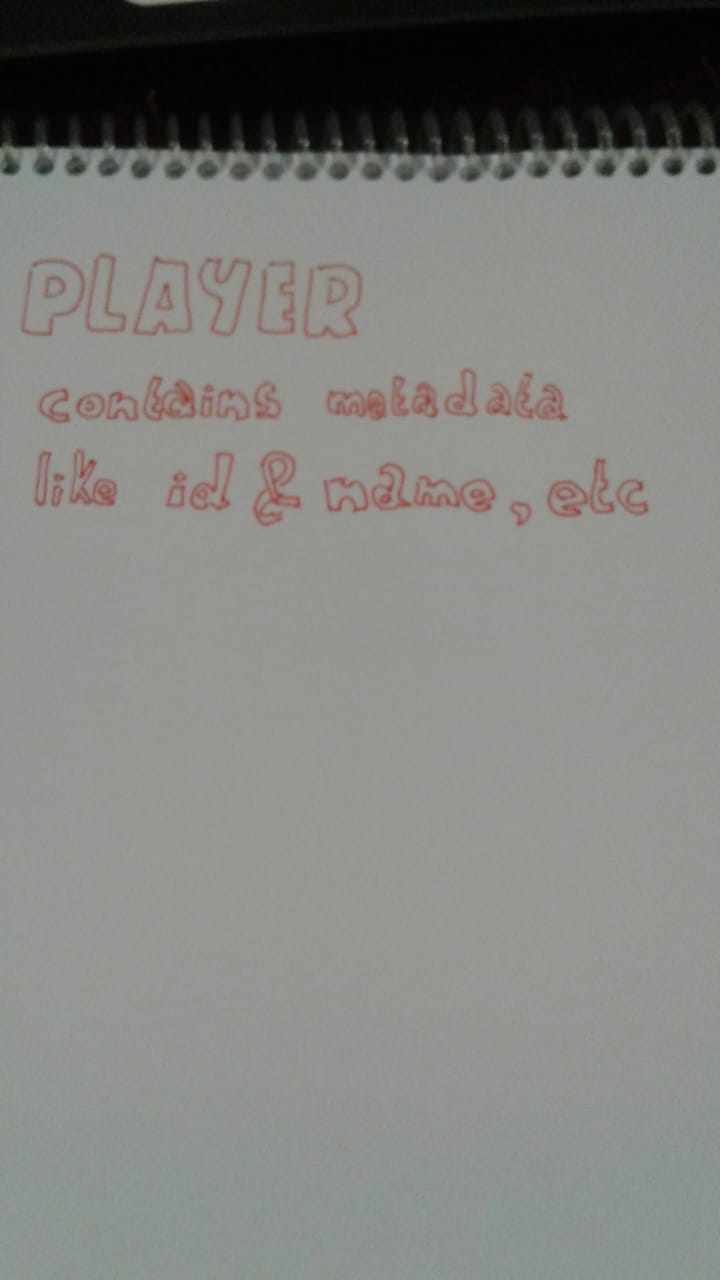 PLAYER
contains metadata
like id & name, etc